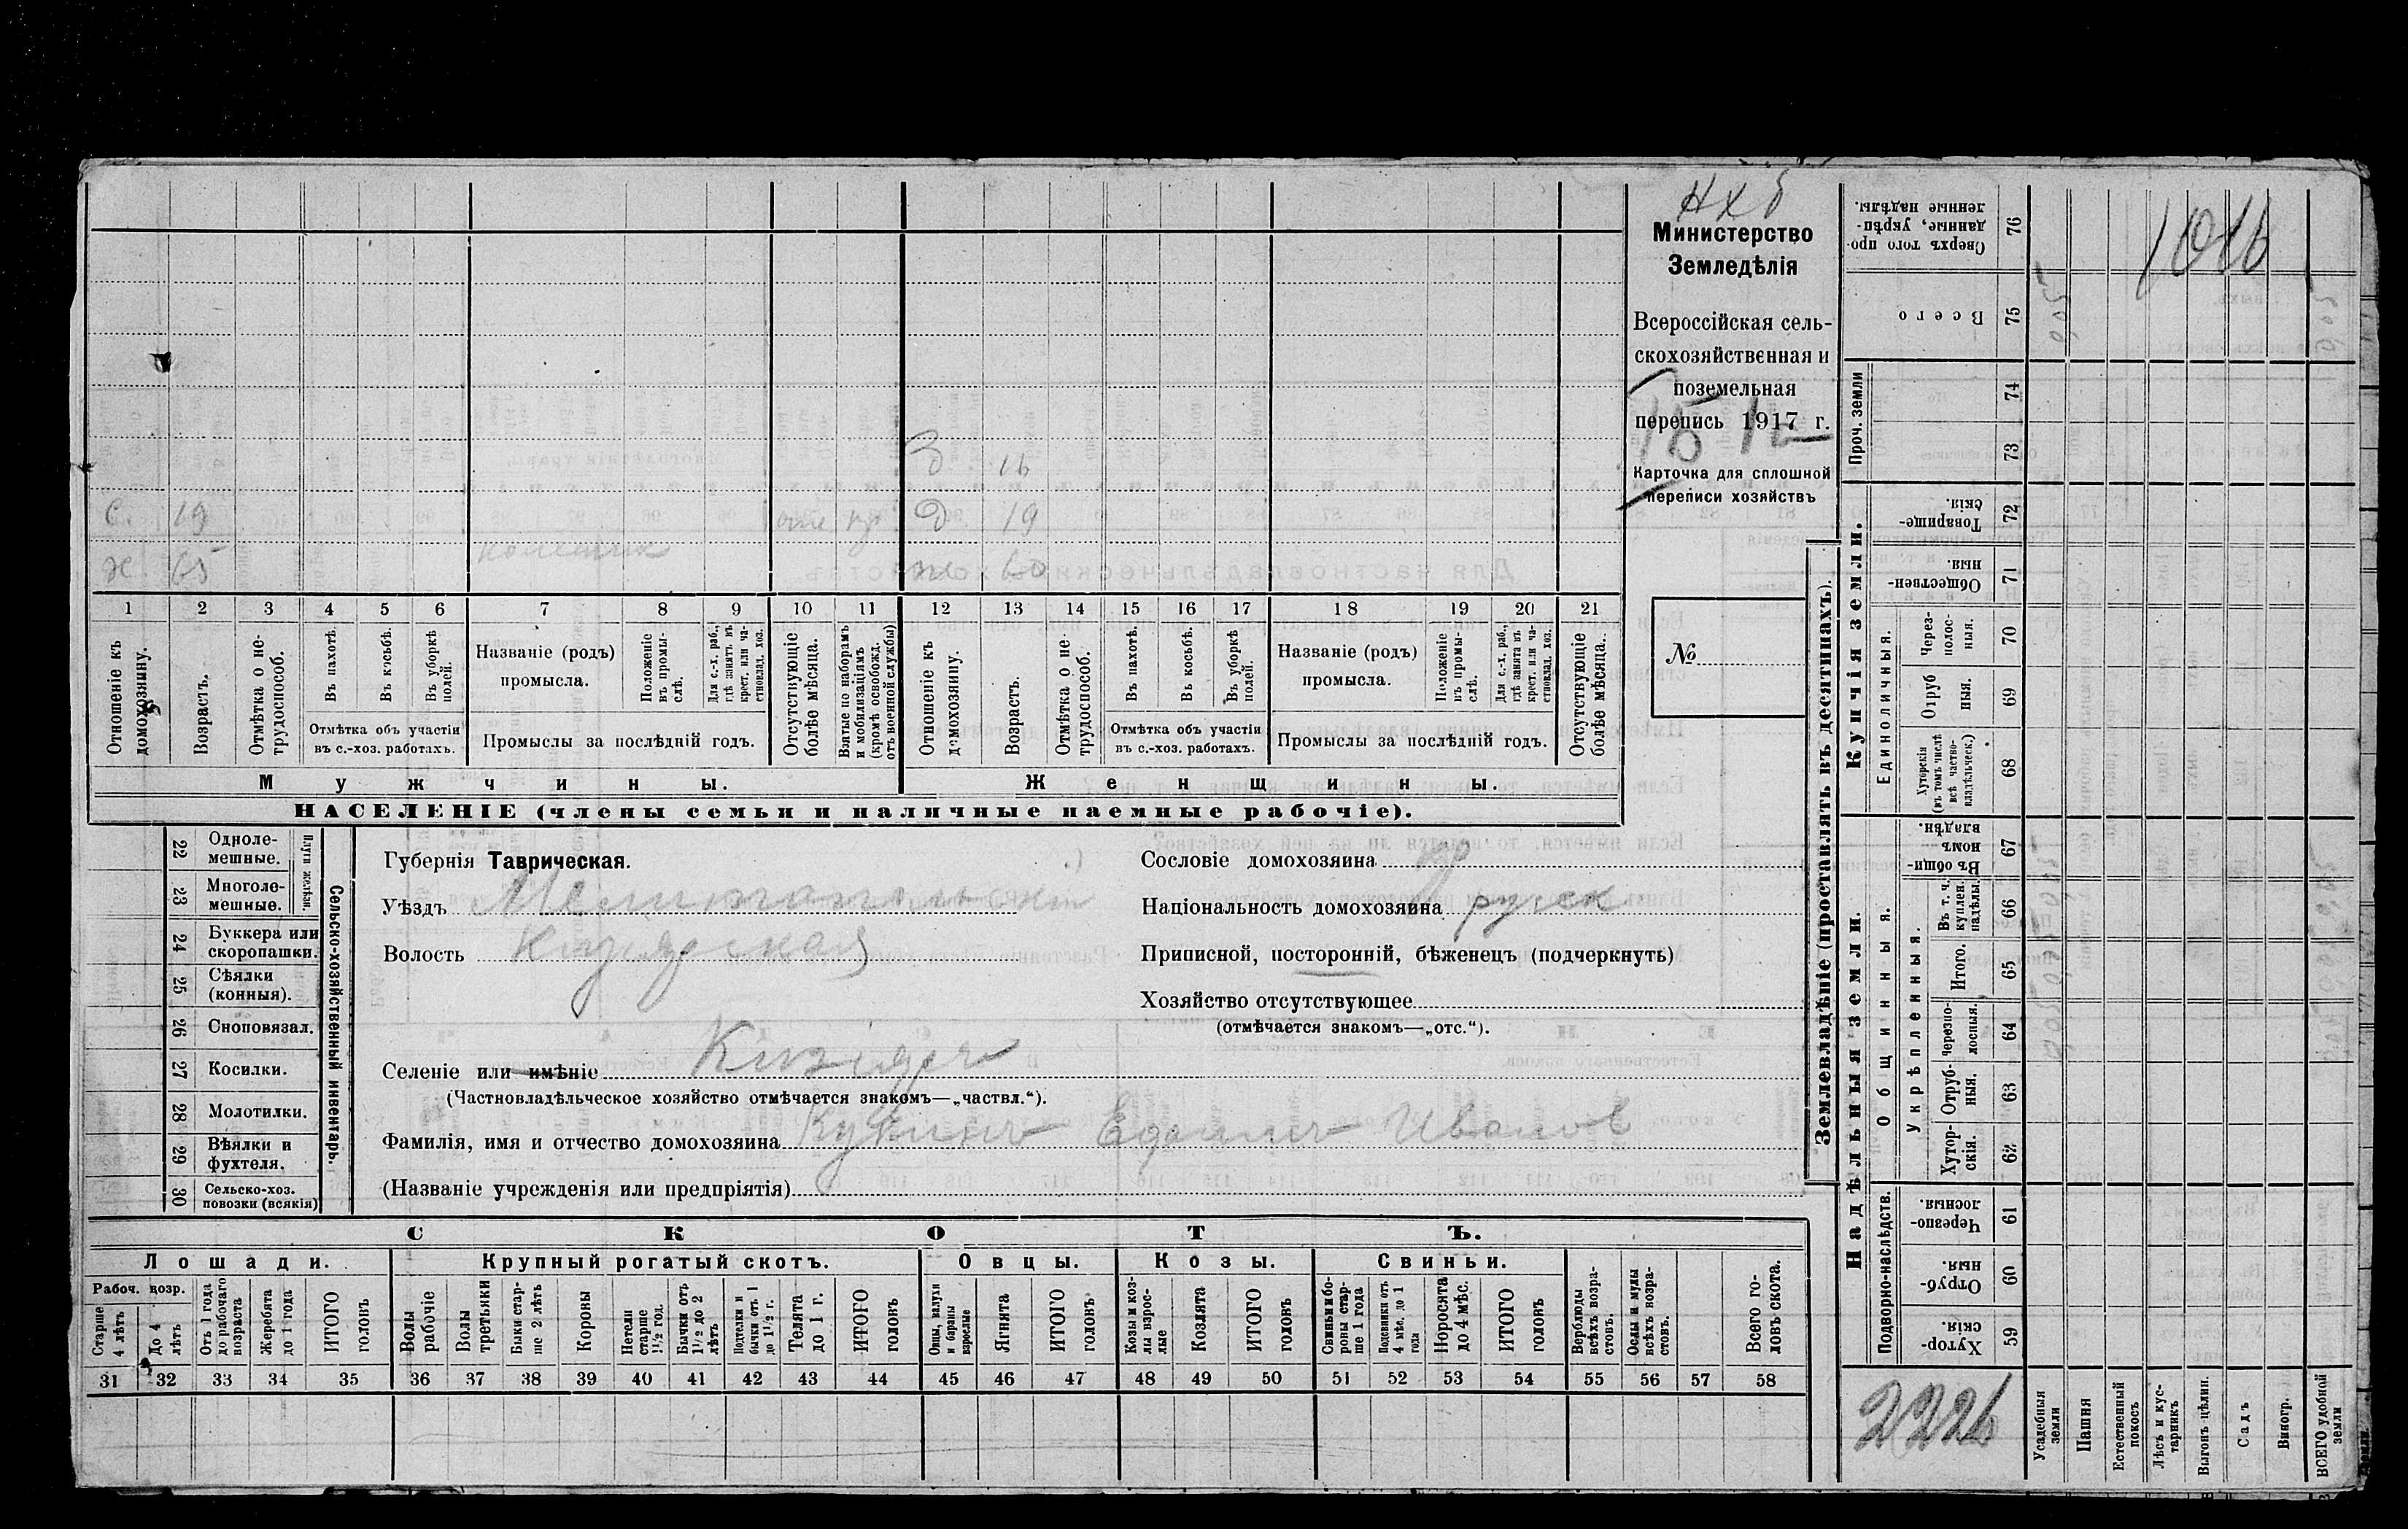 нхб
Министерство
Земледѣлія
Всероссійская сель-
скохозяйственная и
поземельная
перепись 1917 г.
Карточка для сплошной
переписи хозяйствъ
№
З 16
С. 19 Д. 19
х. 65 60
1 2 3 4 5 6 7 8 9 10 11 12 13 14 15 16 17 18 19 20 21
Отношеніе къ домохозяину.
Возрастъ.
Отмѣтка о не-трудоспособ.
Въ пахотѣ.
Въ косьбѣ.
Въ уборкѣ полей.
Отмѣтка объ участіи
въ с.-хоз. работахъ.
Названіе (родъ)
промысла.
Положеніе въ промы-слѣ.
Для с.-х. раб., гдѣ занятъ въ крест. или ча-стновлад. хоз.
Промыслы за послѣдній годъ.
Отсутствующіе болѣе мѣсяца.
Взятые по наборамъ и мобилизаціямъ (кромѣ освобожд. отъ военной службы)
Отношеніе къ домохозяину.
Возрастъ.
Отмѣтка о не-трудоспособ.
Въ пахотѣ.
Въ косьбѣ.
Въ уборкѣ полей.
Отмѣтка объ участіи
въ с.-хоз. работахъ.
Названіе (родъ)
промысла.
Положеніе въ промы-слѣ.
Для с.-х. раб., гдѣ занята въ крест. или ча-стновлад. хоз.
Промыслы за послѣдній годъ.
Отсутствующіе болѣе мѣсяца.
Мужчины.
Женщины.
НАСЕЛЕНІЕ (члены семьи и наличные наемные рабочіе).
22 Однолемешные.
23 Многолемешные.
Плуги желѣзн.
24 Буккера или скоропашки.
25 Сѣялки (конныя).
26 Сноповязал.
27 Косилки.
28 Молотилки.
29 Вѣялки и фухтеля.
30 Сельско-хоз. повозки (всякія)
Сельско-хозяйственный инвентарь.
Губернія Таврическая.
Уѣздъ Мелитопольскій
Волость Кизіярская
Селеніе или имѣніе Кизіяръ
(Частновладѣльческое хозяйство отмѣчается знакомъ—„частвл.“).
Фамилія, имя и отчество домохозяина Иванов
(Названіе учрежденія или предпріятія)
Сословіе домохозяина кр
Національность домохозяина руск.
Приписной, посторонній, бѣженецъ (подчеркнуть)
Хозяйство отсутствующее
(отмѣчается знакомъ—„отс.“).
СКОТЪ.
Лошади. Крупный рогатый скотъ. Овцы. Козы. Свиньи.
Рабоч. возр.
Старше 4 лѣтъ
До 4 лѣтъ
Отъ 1 года до рабочаго возраста
Жеребята до 1 года
ИТОГО головъ
Волы рабочіе
Волы третьяки
Быки стар-ше 2 лѣтъ
Коровы
Нетели старше 1½ год.
Бычки отъ 1½ до 2 лѣтъ
Подтелки и бычки отъ 1 до 1½ г.
Телята до 1 г.
ИТОГО головъ
Овцы, валухи и бараны взрослые
Ягнята
ИТОГО головъ
Козы и коз-лы взрос-лые
Козлята
ИТОГО головъ
Свиньи и бо-ровы стар-ше 1 года
Подсвинки отъ 4 мѣс. до 1 года
Поросята до 4 мѣс.
ИТОГО головъ
Верблюды всѣхъ возра-стовъ.
Ослы и мулы всѣхъ возра-стовъ.
Всего го-ловъ скота.
31 32 33 34 35 36 37 38 39 40 41 42 43 44 45 46 47 48 49 50 51 52 53 54 55 56 57 58
Землевладѣніе (проставлять въ десятинахъ).
Сверхъ того про-данные, укрѣп-ленные надѣлы. 76
Всего 75
Проч. земли 74 73
Купчія земли.
Товарище-скія. 72
Обществен-ныя. 71
Единоличныя.
Через-полос-ныя. 70
Отруб ныя. 69
Хуторскія (въ томъ числѣ всѣ частно-владѣльческ.) 68
Надѣльныя земли.
Общинныя.
Въ общи-номъ владѣн. 67
Укрѣпленныя.
Въ т. ч. куплен. надѣлы. 66
Итого. 65
Черезпо-лосныя. 64
Отруб-ныя. 63
Хутор-скія. 62
Подворно-наслѣдств.
Черезпо-лосныя. 61
Отруб-ныя. 60
Хутор-скія. 59
Усадебныя земли
Пашня
Естественный покосъ
Лѣсъ и кус-тарникъ
Выгонъ цѣлин.
Садъ
Виногр.
ВСЕГО удобной земли
1016
2226